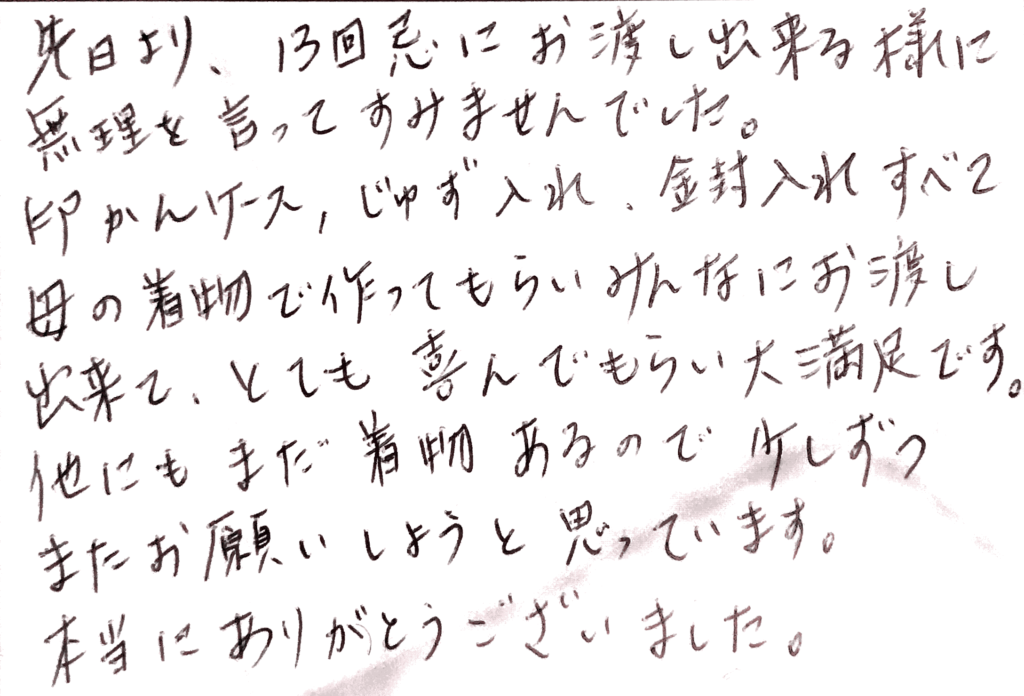 先日より、13回忌にお渡し出来る様に
無理を言ってすみませんでした。
印かんケース,じゅず入れ、金封入れすべて
母の着物で作ってもらいみんなにお渡し
出来て、とても喜んでもらい大満足です。
他にもまだ着物あるので少しずつ
またお願いしようと思っています。
本当にありがとうございました。